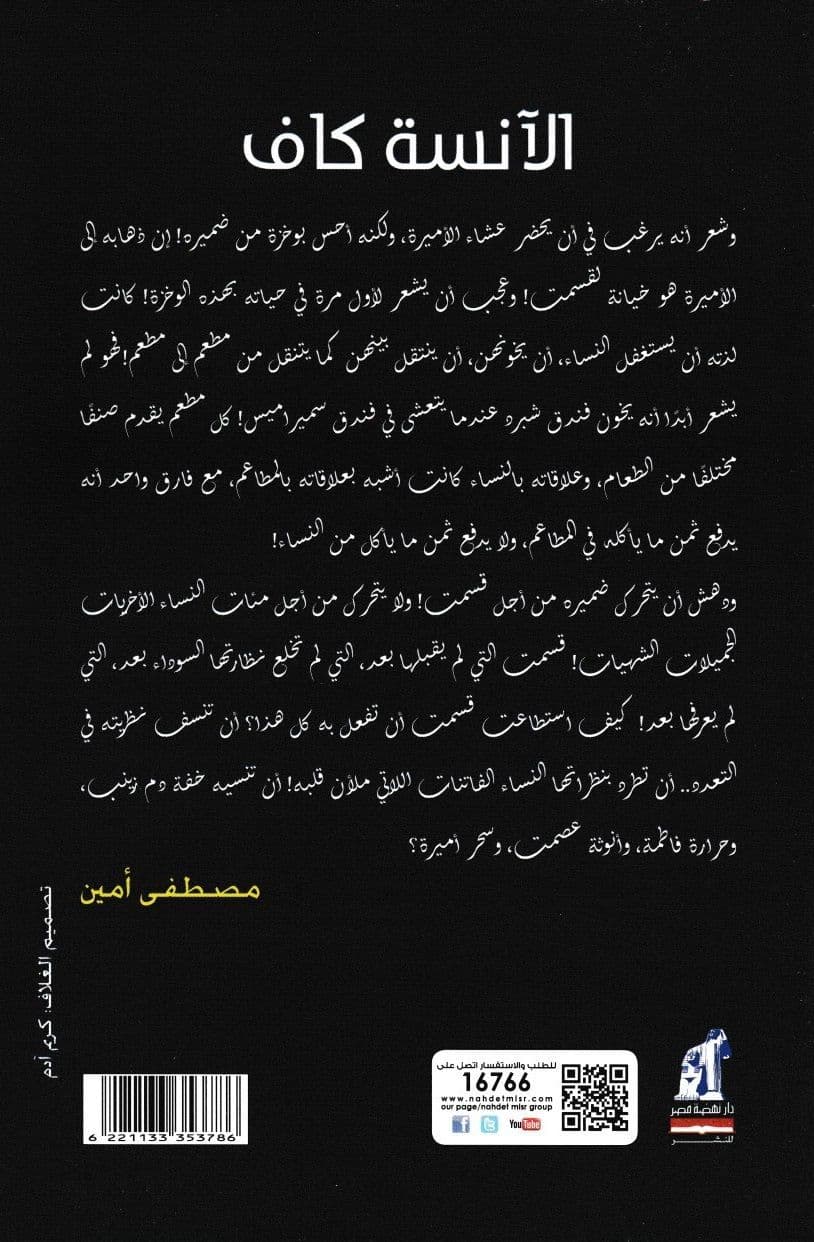 الآنسة كاف
وشعر أنه يرغب في أن يحضر عشاء الأميرة، ولكنه أحس بوخزة من ضميره! إن ذهابه إلى
الأميرة هو خيانة لقسمت! وعجب أن يشعر لأول مرة في حياته بهذه الوخزة! كانت
لذته أن يستغفل النساء، أن يخونهن، أن ينتقل بينهن كما يتنقل من مطعم إلى مطعم! فهو لم
يشعر أبدًا أنه يخون فندق شبرد عندما يتعشى في فندق سميراميس! كل مطعم يقدم صنفًا
مختلفًا من الطعام، وعلاقاته بالنساء كانت أشبه بعلاقاته بالمطاعم، مع فارق واحد أنه
يدفع ثمن ما يأكله في المطاعم، ولا يدفع ثمن ما يأكل من النساء!
ودهش أن يتحرك ضميره من أجل قسمت! ولا يتحرك من أجل مئات النساء الأخريات
الجميلات الشهيات! قسمت التي لم يقبلها بعد، التي لم تخلع نظارتها السوداء بعد، التي
لم يعرفها بعد! كيف استطاعت قسمت أن تفعل به كل هذا؟ أن تنسف نظريته في
التعدد.. أن تطرد بنظراتها النساء الفاتنات اللاتي ملأن قلبه! أن تنسيه خفة دم زينب،
وحرارة فاطمة، وأنوثة عصمت، وسحر أميرة؟
مصطفى أمين
تصميم الغلاف: كريم آدم
6 221133 353786
للطلب والاستفسار اتصل على
16766
www.nahdetmisr.com
our page/nahdet misr group
f t YouTube
دار نهضة مصر
للنشر